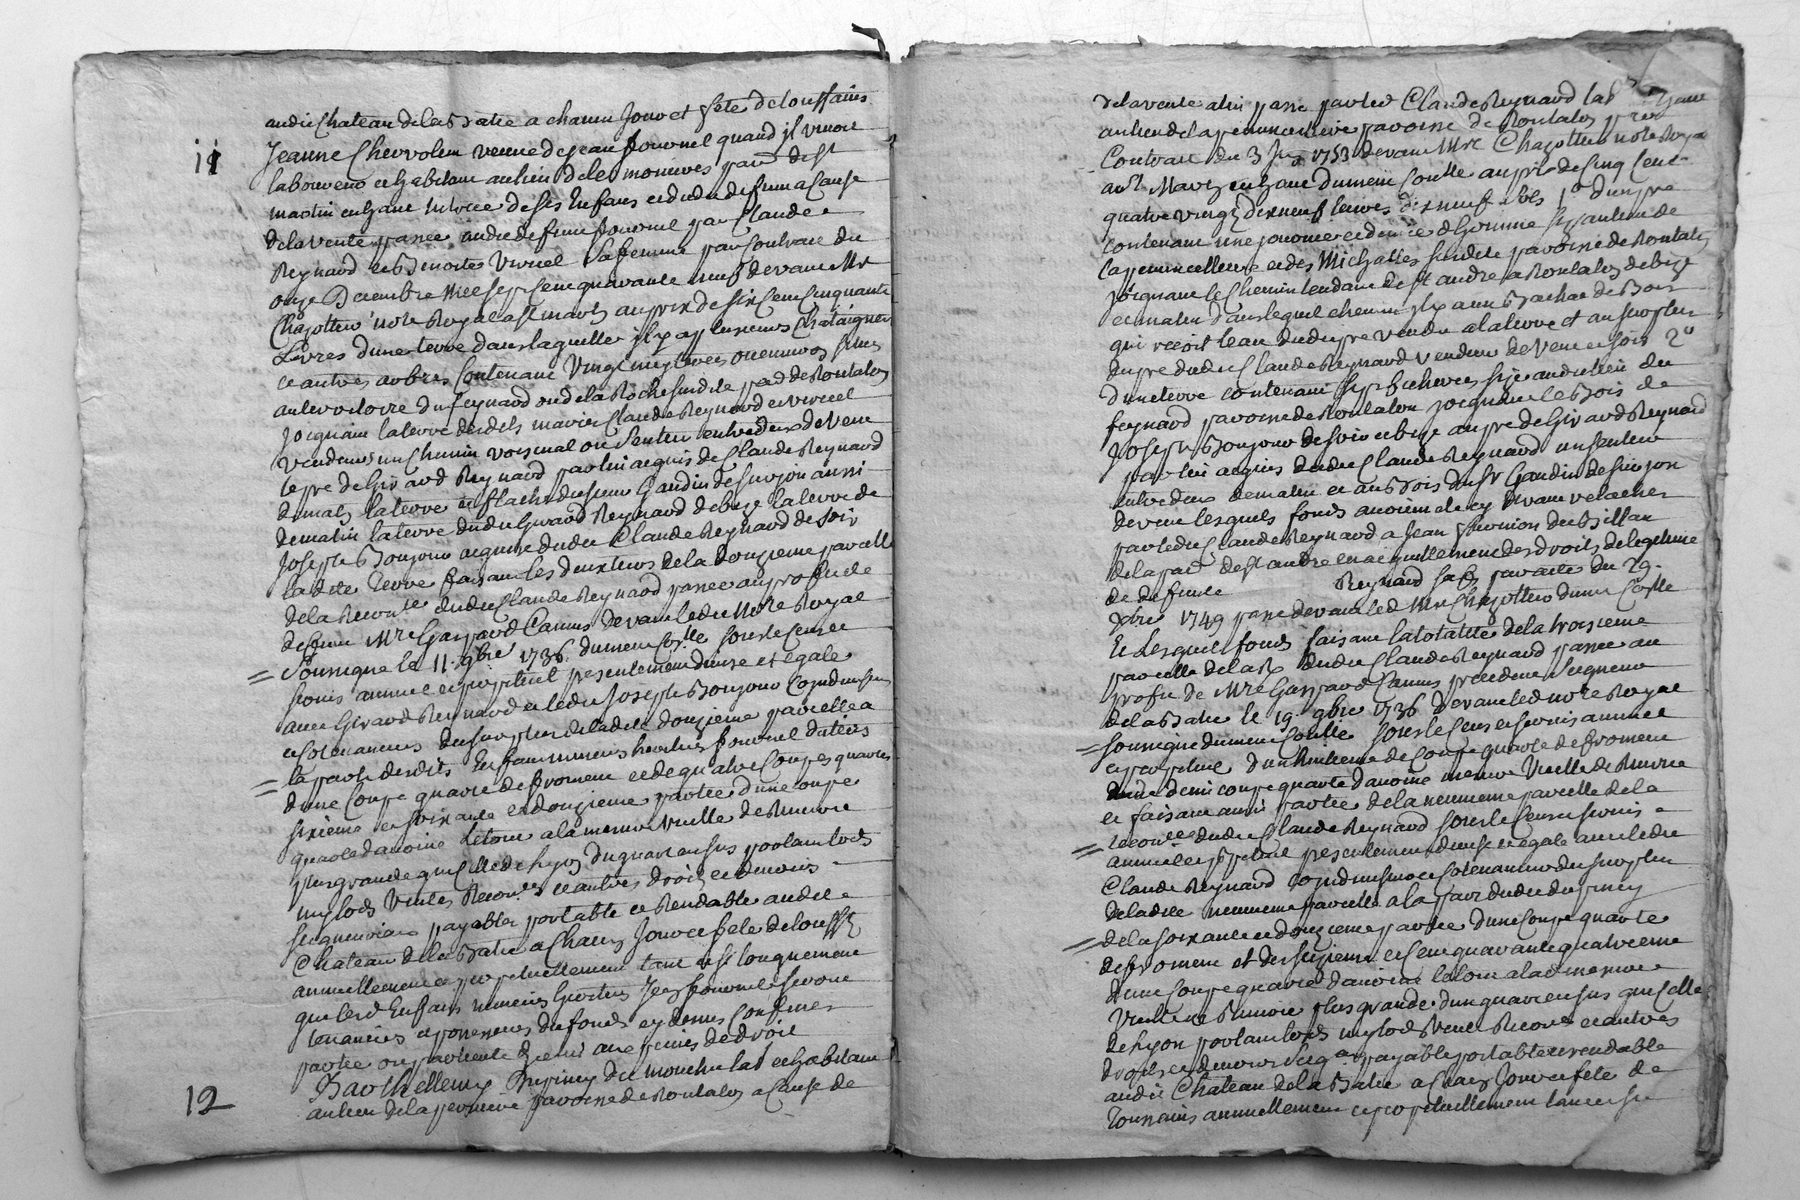 audit Chateau de la Batie a chacun Jour et fete de toussaints
11
Jeanne Chevrolin veuve de jean fournel quand il vivoit
laboureur et habitant au lieu de les monieres parr. de St
martin en haut tutrice de ses Enfans et dudit defunt a Cause
de la vente passée audit defunt fournel par Claude
Reynard et Benoite Viriuel sa femme par Contrat du
onze Decembre Mil sept Cent quarante neuf devant Mre
Chazottier notre Royal a St martin au prix de six Cent Cinquante
Livres d'une terre dans laquelle il y a plusieurs Chataigners
et autres arbres Contenant vingt
au territoire du feynard ou de la Roche susdite parr de Rontalon
joignant la terre desdits mariés Claude Reynard et viriuel
vendeurs un Chemin voisinal ou Sentier entredeux de vent
le pré de Girard Reynard par lui acquis de Claude Reynard
de matin la terre et flache du sieur Gaudin de surjon aussi
de matin la terre dudit Girard Reynard de bize la terre de
Joseph Boujour acquise dudit Claude Reynard de soir
ladite terre faisant les deux tiers de la douzieme parcelle
de la Reconse dudit Claude Reynard passée au profit de
defunt Mre Gaspard Camus devant ledit Notre Royal
Soussigné le 11 9bre 1736 dument Conlle sous le Cens et
servis annuel et perpetuel presentement divisé et egalé
avec Girard Reynard et ledit Joseph Boujour Copdimseurs
et Cotenanciers du surplus de ladite douzieme parcelle a
la part desdits Enfans mineurs heritiers fournel du tiers
d'une Coupe quarte de froment et de quatre Coupes quartes
sixieme et soixante et douzieme partie d'une coupe
quarte d'avoine le tout a la mesure vieille de Riverie
plus grande que Celle de Lyon du quart en sus portant lods
milods Ventes Reconses et autres droits et devoirs
seigneuriaux payable portable et Rendable audit
Chateau de la Batie a Chacun Jour et fete de toussts
annuellement et perpetuellement tant et si longuement
que lesd Enfans mineurs heritiers Jean fournel seront
tenanciers et possesseurs du fonds cy dessus Confiné
partie ou partiente d'icelui aux peines de droit
12
Barthellemy Dupiney dit mouchu lab et habitant
au lieu de la perriniere paroisse de Rontalon a Cause de
de la vente a lui passée par led Claude Reynard lab
au lieu de la peunincelliere paroisse de Rontalon
Contrat du 3 1753 devant Mre Chazottier notre Royal
aud St Martin en haut dument Conlle au prix de Cinq Cent
quatre vingt dixneuf livres dixneuf sols 1° d'un pré
contenant une journée et demie d'homme scis au lieu de
la peunincelliere et des Michalles susdite paroisse de Rontalon
joignant le Chemin tendant de St andré a Rontalon de bize
et matin dans lequel chemin il y a un Bachat de Bois
qui recoit l'eau dudit pré vendu a la terre et au surplus
du pré dudit Claude Reynard vendeur de vent et soir 2°
d'une terre contenant sept bicherées scize audit lieu du
feynard paroisse de Rontalon joignant le Bois de
Joseph Boujour de soir et bize au pré de Girard Reynard
par lui acquis dudit Claude Reynard un sentier
entredeux de matin et au Bois du Sr Gaudin de surjon
de vent lesquels fonds avoient été cy devant relachés
par ledit Claude Reynard a Jean du Billan
de la parr de St andré en acquittement des droits de legitime
de defunte Reynard sa par acte du 29
Xbre 1749 passé devant led Mre Chazottier dument Conlle
Et Lesquels fonds faisant la totalité de la troisieme
parcelle de la R dudit Claude Reynard passée au
profit de Mre Gaspard Camus precedent Seigneur
de la Batie le 19 9bre 1736 devant led notre Royal
soussigné dument Conlle sous le Cens et servis annuel
et perpetuel d'un huitieme de Coupe quarte de froment
d'une demi coupe quarte d'avoine mesure vieille de Riverie
et faisant aussi partie de la neuvieme parcelle de la
reconse dudit Claude Reynard sous le Cens et servis
annuel et perpetuel presentement divisé et egalé avec ledit
Claude Reynard Copdimseur et Cotenancier du surplus
de ladite neuvieme parcelle a la part dudit dupiney
de la soixante et douzieme partie d'une Coupe quarte
de froment et du sixieme et Cent quarante quatrieme
d'une Coupe quarte d'avoine le tout a lad mesure
vieille de Riverie plus grande d'un quart en sus que Celle
de Lyon portant lods milods Vente Recons et autres
droits et devoirs seigx payable portable et rendable
audit Chateau de la Batie a Chacun Jour et fete de
toussaints annuellement et perpetuellement tant et si